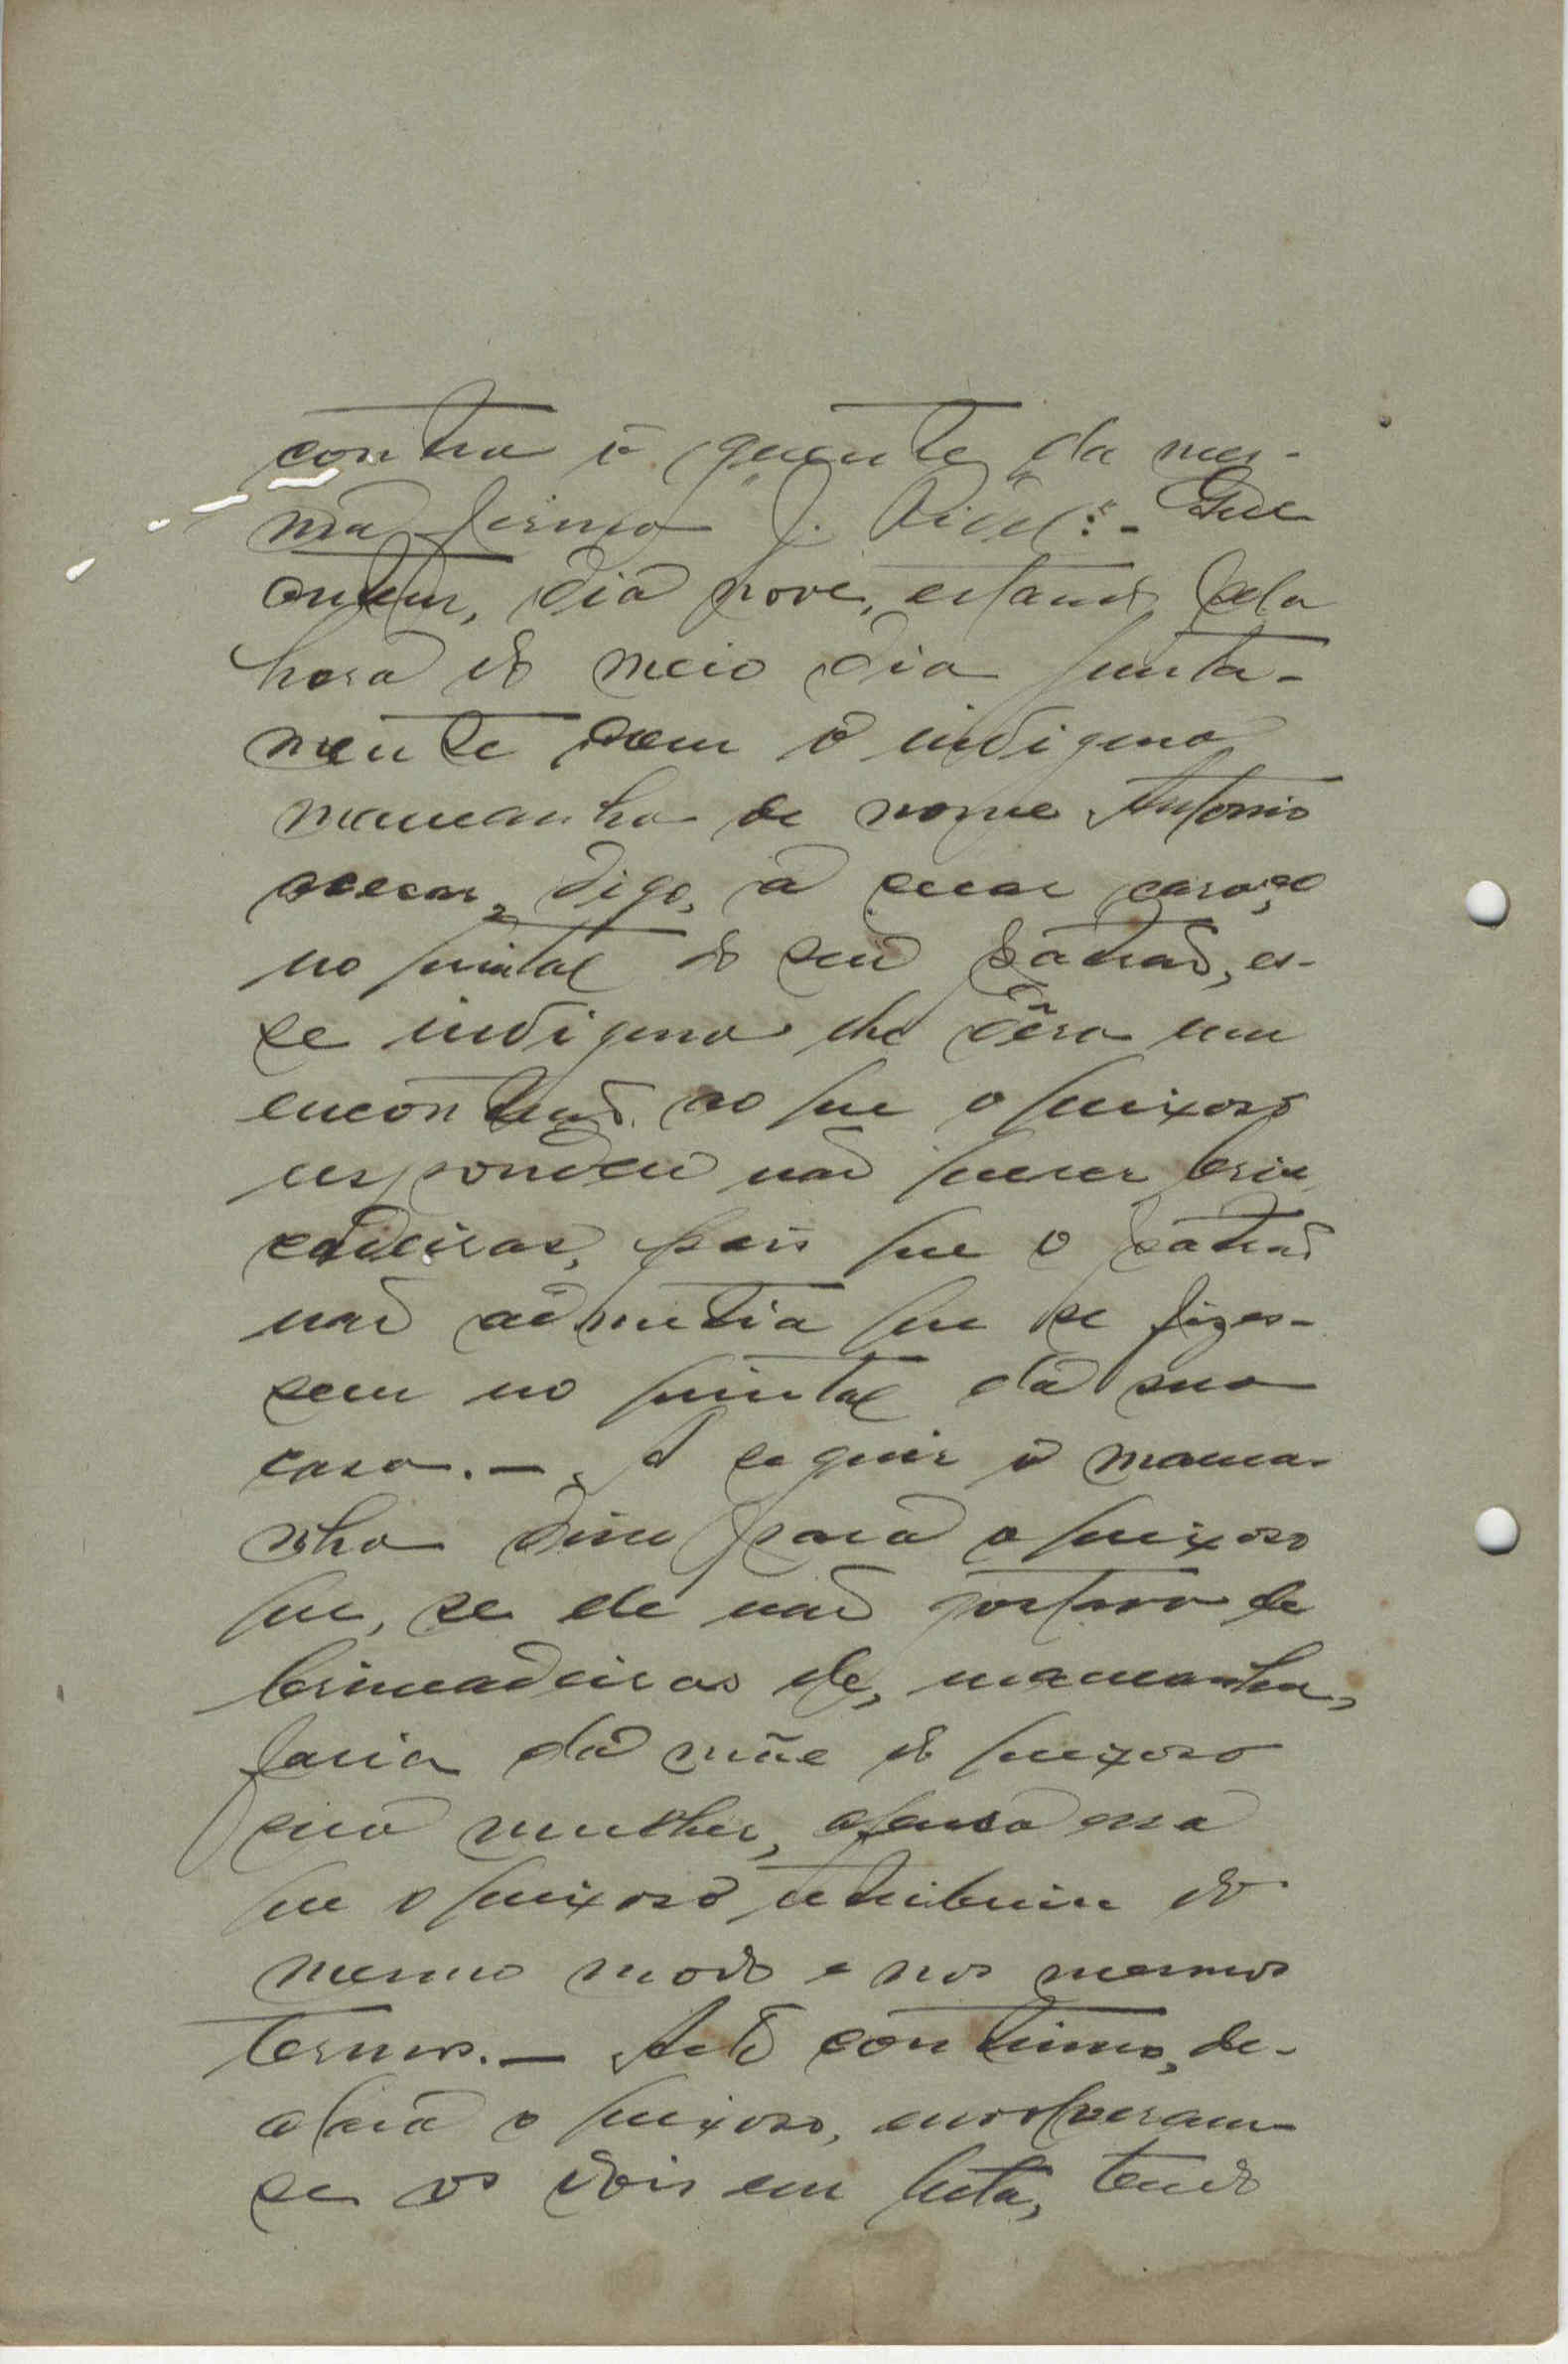 contra o gerente da mes-
ma firma J. Vidal:- Que
ontem, dia nove, estando pela
hora do meio dia junta-
mente com o indigena
mamanha de nome Antonio
secar, digo, a secar caroço
no quintal do seu patrão, es-
se indigena lhe déra um
encontrão ao que o queixoso
respondeu não querer brin
cadeiras, pois que o patrão
não admitia que se fizes-
sem no quintal da sua
casa.- A seguir o mama-
nha disse para o queixoso
que, se ele não gostava de
brincadeiras dele, mamanha,
faria da mãe do queixoso
sua mulher, ofensa essa
que o queixoso retribuiu do
mesmo modo e nos mesmos
termos.- Acto continuo, de-
clara o queixoso, envolveram-
se os dois em luta, tendo